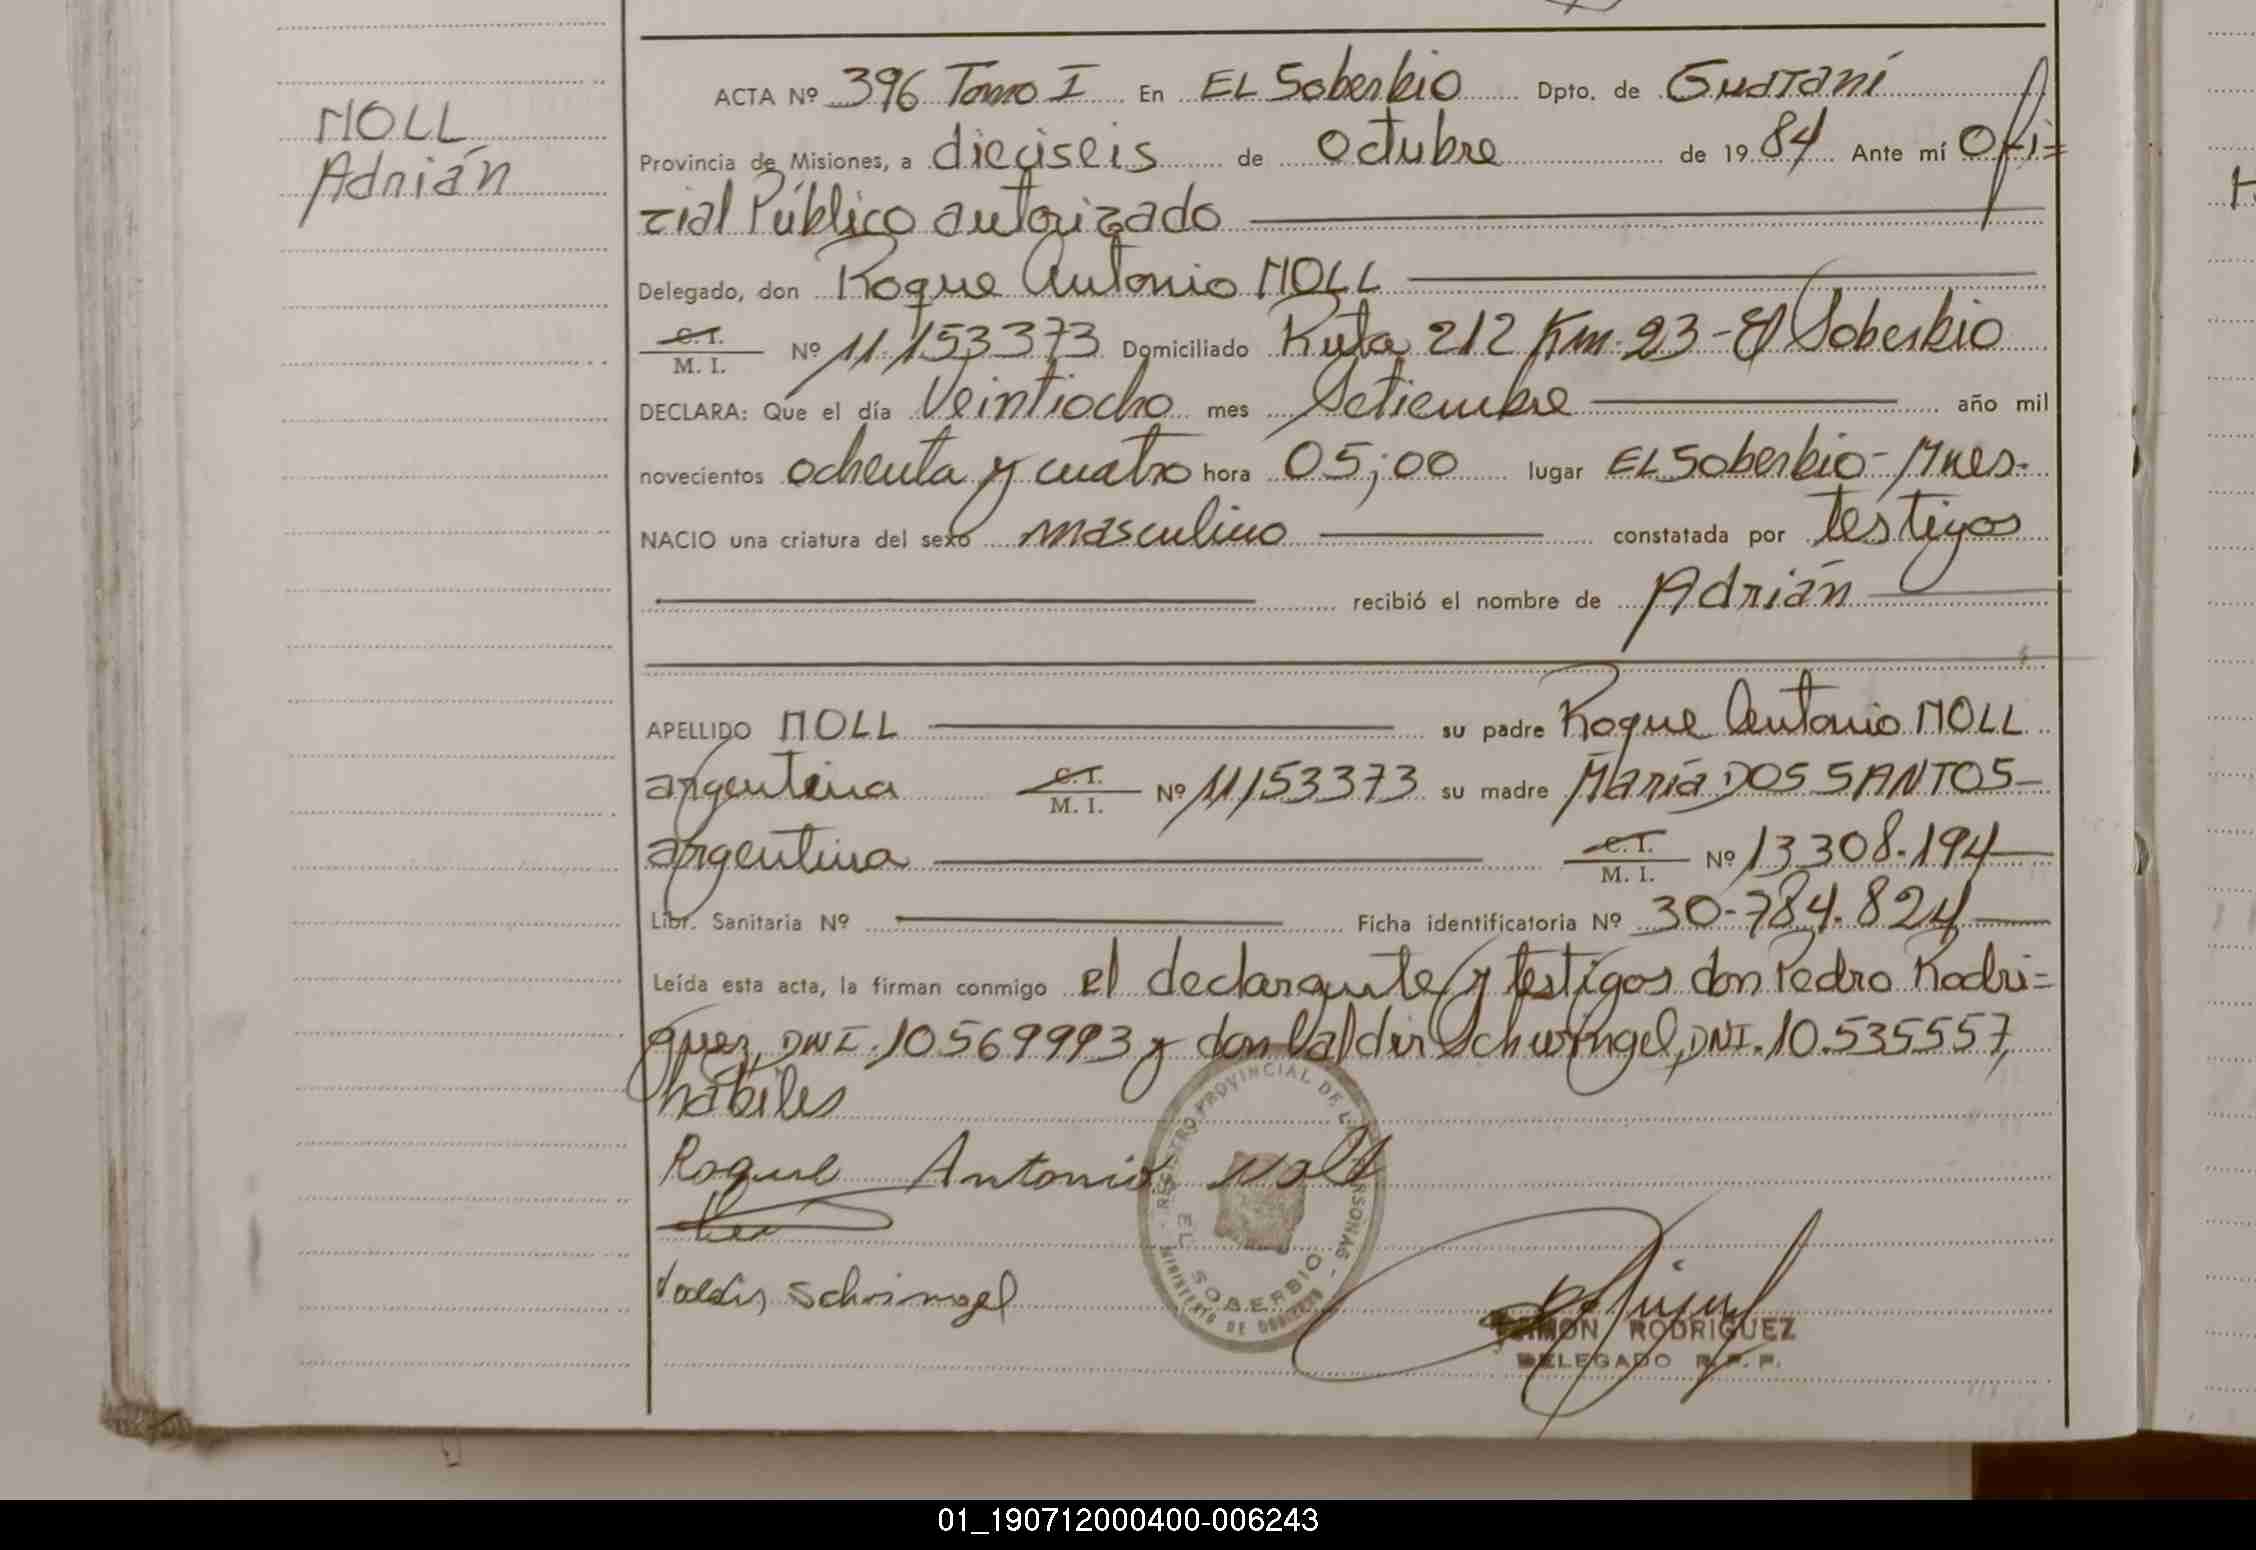 MOLL
Adrián
ACTA Nº 396 Tomo I En EL Soberbio Dpto. de Guaraní
Provincia de Misiones, a dieciseis de octubre de 1984 Ante mí Ofi=
cial Público autorizado
Delegado, don Roque Antonio MOLL
C. I.
M. I. Nº 11.153373 Domiciliado Ruta 212 Km. 23 - El Soberbio
DECLARA: Que el día Veintiocho mes Setiembre año mil
novecientos ochenta y cuatro hora 05;00 lugar EL Soberbio - Mnes.
NACIO una criatura del sexo masculino constatada por testigos
recibió el nombre de Adrián
APELLIDO MOLL su padre Roque Antonio MOLL
argentina C. I. M. I. Nº 11153373 su madre María DOS SANTOS
argentina C. I. M. I. Nº 13308.194
Libr. Sanitaria Nº Ficha identificatoria Nº 30-784.824
Leída esta acta, la firman conmigo el declarante y testigos don Pedro Rodri=
guez, DNI. 10569993 y don Valdir Schwingel, DNI. 10.535557,
hábiles
Roque Antonio Moll
Valdir Schwingel
REGISTRO PROVINCIAL DE LAS PERSONAS
EL SOBERBIO
MINISTERIO DE GOBIERNO
RAMON RODRIGUEZ
DELEGADO R. P. P.
01_190712000400-006243